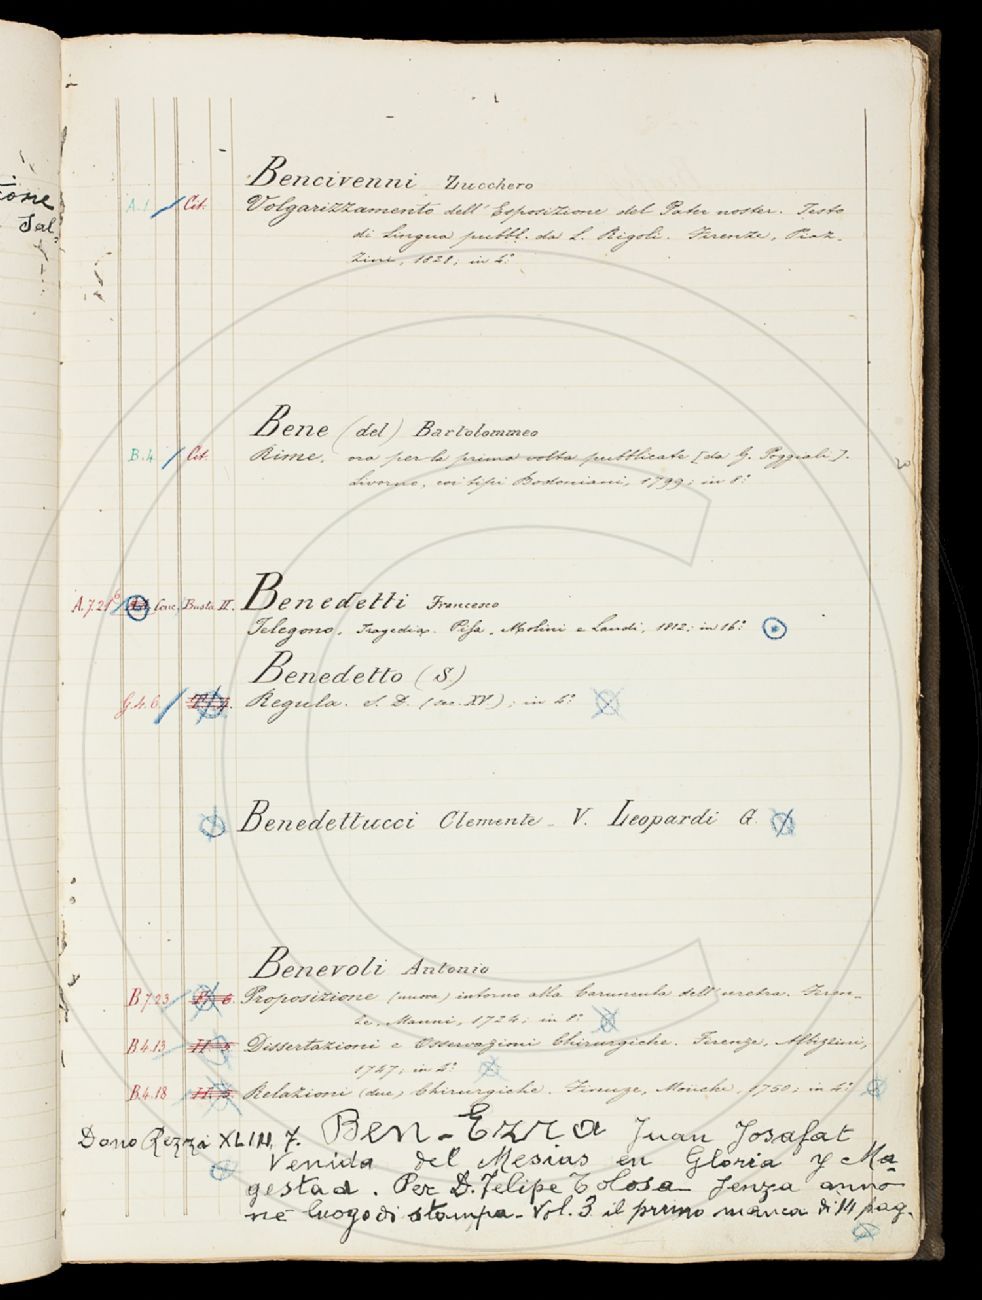 ione
Sal-
Bencivenni Zucchero
A.1 Cit. Volgarizzamento dell'Esposizione del Pater noster. Testo
di lingua pubbl. da L. Rigoli. Firenze, Piaz-
zini, 1828; in 4°
Bene (del) Bartolommeo
B.4 Cit. Rime, ora per la prima volta pubblicate [da G. Poggiali].
Livorno, coi tipi Bodoniani, 1799; in 8°
Benedetti Francesco
A.7.21 6 Canc. Busta II.
Telegono, Tragedia. Pisa, Molini e Landi, 1812; in 16°
Benedetto (S.)
G.4.6. Regula. S. D. (sec. XV); in 4°
Benedettucci Clemente - V. Leopardi G.
Benevoli Antonio
B.7.23 Proposizione (nuova) intorno alla Caruncula dell'uretra. Firen-
ze, Manni, 1724; in 8°
B.4.13 Dissertazioni e Osservazioni Chirurgiche. Firenze, Albizzini,
1747; in 4°
B.4.18 Relazioni (due) Chirurgiche. Firenze, Moücke, 1750; in 4°
Dono Rezzi XLIII, 7. Ben-Ezra Juan Josafat
Venida del Mesias en Gloria y Ma-
gestad. Per D. Felipe Tolosa senza anno
nè luogo di stampa - Vol. 3 il primo manca di 14 pag.